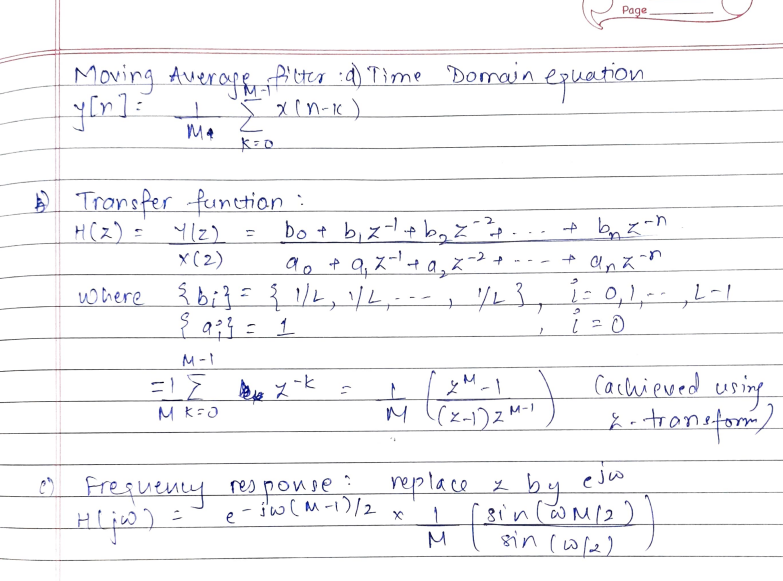 Page
Moving Average filter : a) Time Domain equation
y[n] = 1/M M-1 Σ k=0 x(n-k)
b) Transfer function :
H(z) = Y(z)/X(z) = b₀ + b₁z⁻¹ + b₂z⁻² + ... + bₙz⁻ⁿ / a₀ + a₁z⁻¹ + a₂z⁻² + --- + aₙz⁻ⁿ
where {bi} = { 1/L, 1/L, ---, 1/L }, i = 0,1,--,L-1
{ai} = 1 , i = 0
= 1/M M-1 Σ k=0 z⁻ᵏ = 1/M ( zᴹ-1 / (z-1)zᴹ⁻¹ ) (achieved using
z-transform)
c) Frequency response : replace z by eʲω
H(jω) = e-jω(M-1)/2 × 1/M ( sin(ωM/2) / sin(ω/2) )